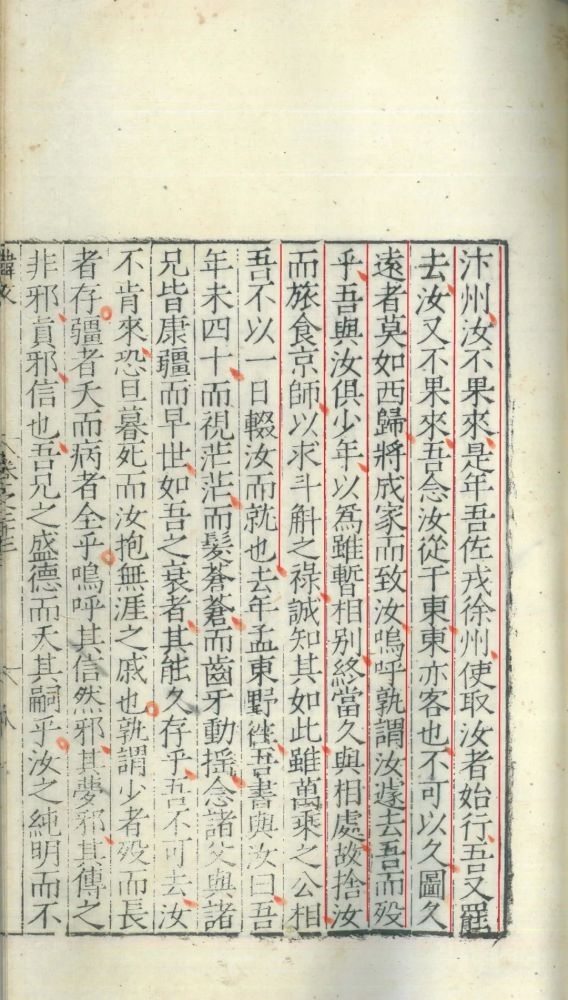 汴州汝不果來是年吾佐戎徐州使取汝者始行吾又罷
去汝又不果來吾念汝從于東東亦客也不可以久圖久
遠者莫如西歸將成家而致汝嗚呼孰謂汝遽去吾而歿
乎吾與汝俱少年以爲雖暫相别終當久與相處故捨汝
而旅食京師以求斗斛之祿誠知其如此雖萬乘之公相
吾不以一日輟汝而就也去年孟東野徃吾書與汝曰吾
年未四十而視茫茫而髮蒼蒼而齒牙動摇念諸父與諸
兄皆康疆而早世如吾之衰者其能久存乎吾不可去汝
不肯來恐旦暮死而汝抱無涯之戚也孰謂少者歿而長
者存疆者夭而病者全乎嗚呼其信然邪其夢邪其傳之
非邪眞邪信也吾兄之盛德而夭其嗣乎汝之純明而不
韓文